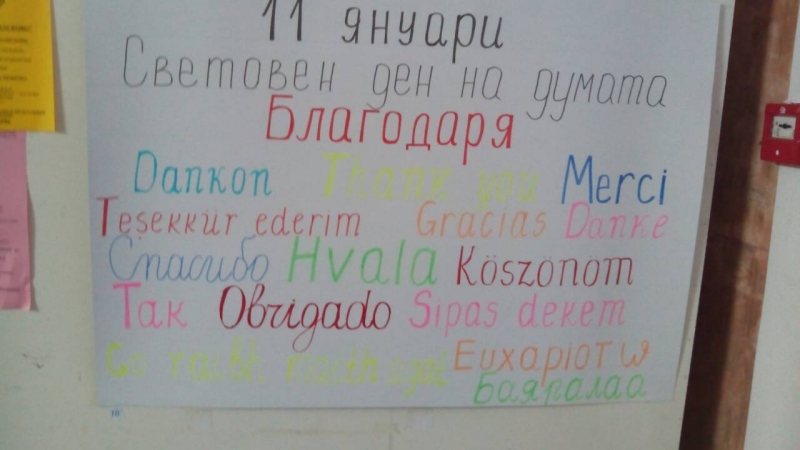 11 януари
Световен ден на думата
Благодаря
Dankon Thank you Merci
Teşekkür ederim Gracias Danke
Спасибо Hvala Köszönom
Tak Obrigado Sipas dekem
Go raibh maith agat Euxapiотω
Баярлалаа